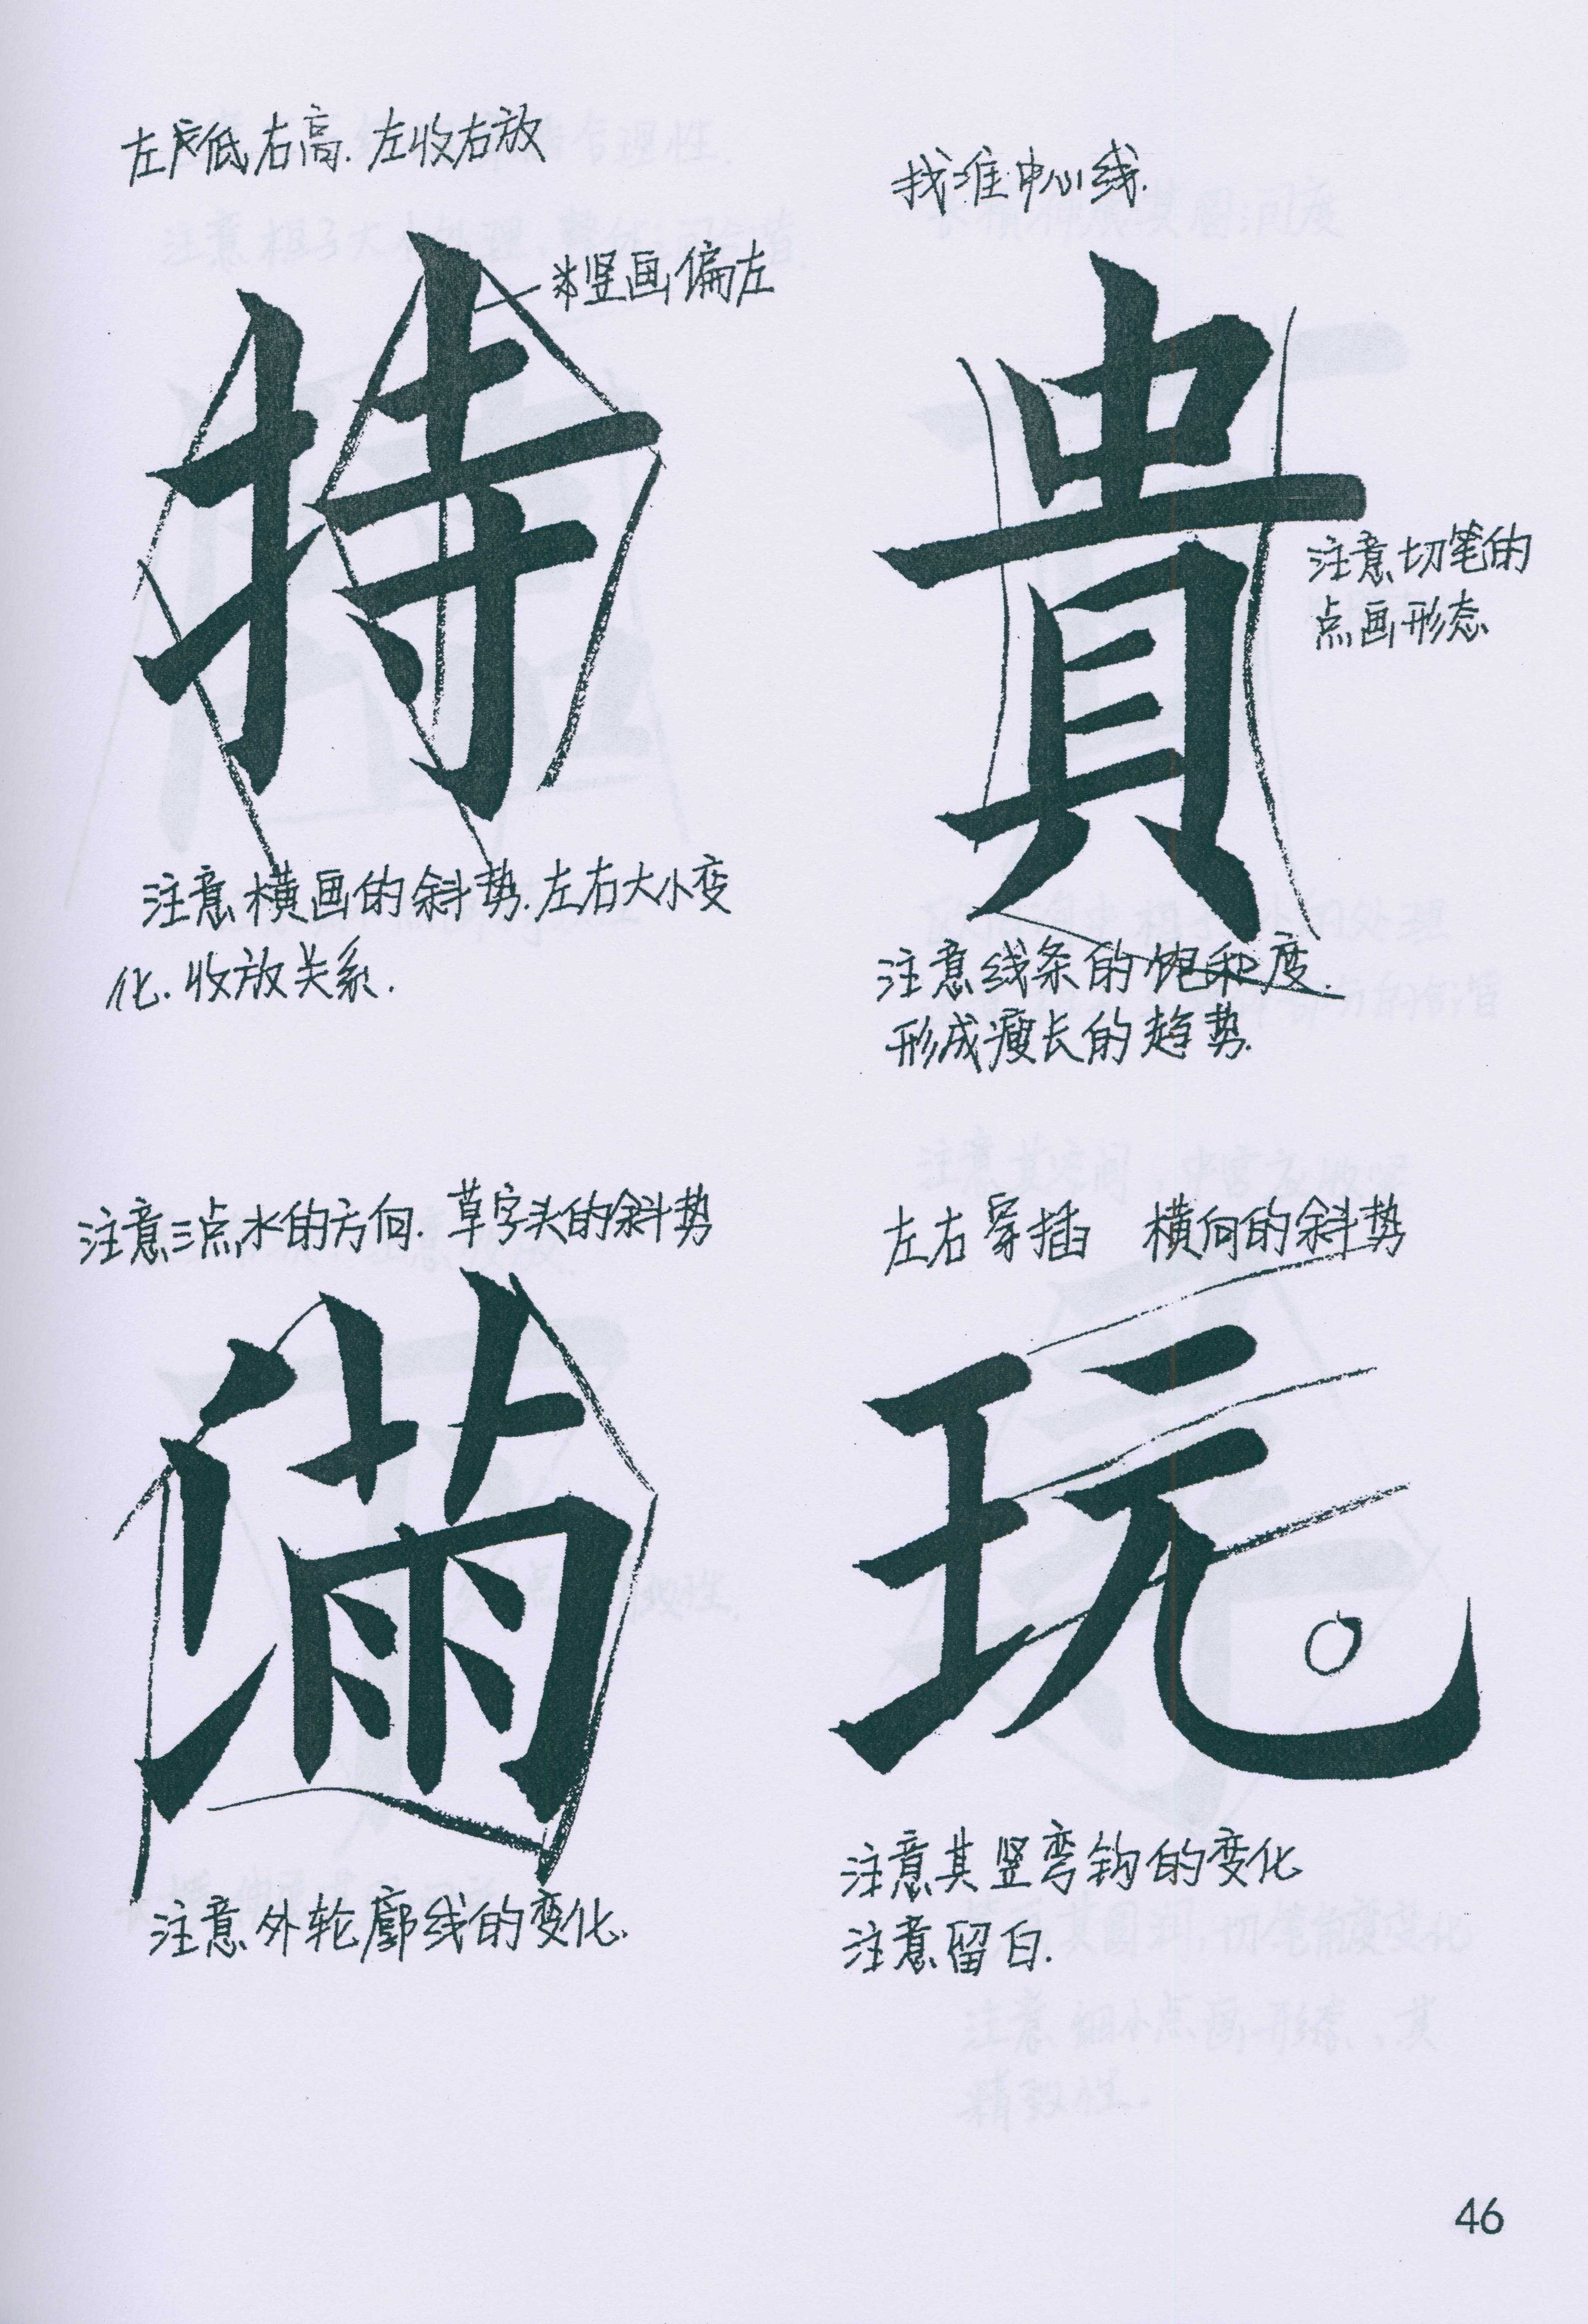 左低右高.左收右放
竖画偏左
持
注意横画的斜势.左右大小变
化.收放关系.
找准中心线.
貴
注意切笔的
点画形态
注意线条的饱和度.
形成瘦长的趋势.
注意三点水的方向.草字头的斜势
满
注意外轮廓线的变化.
左右穿插 横向的斜势
玩
注意其竖弯钩的变化
注意留白.
46